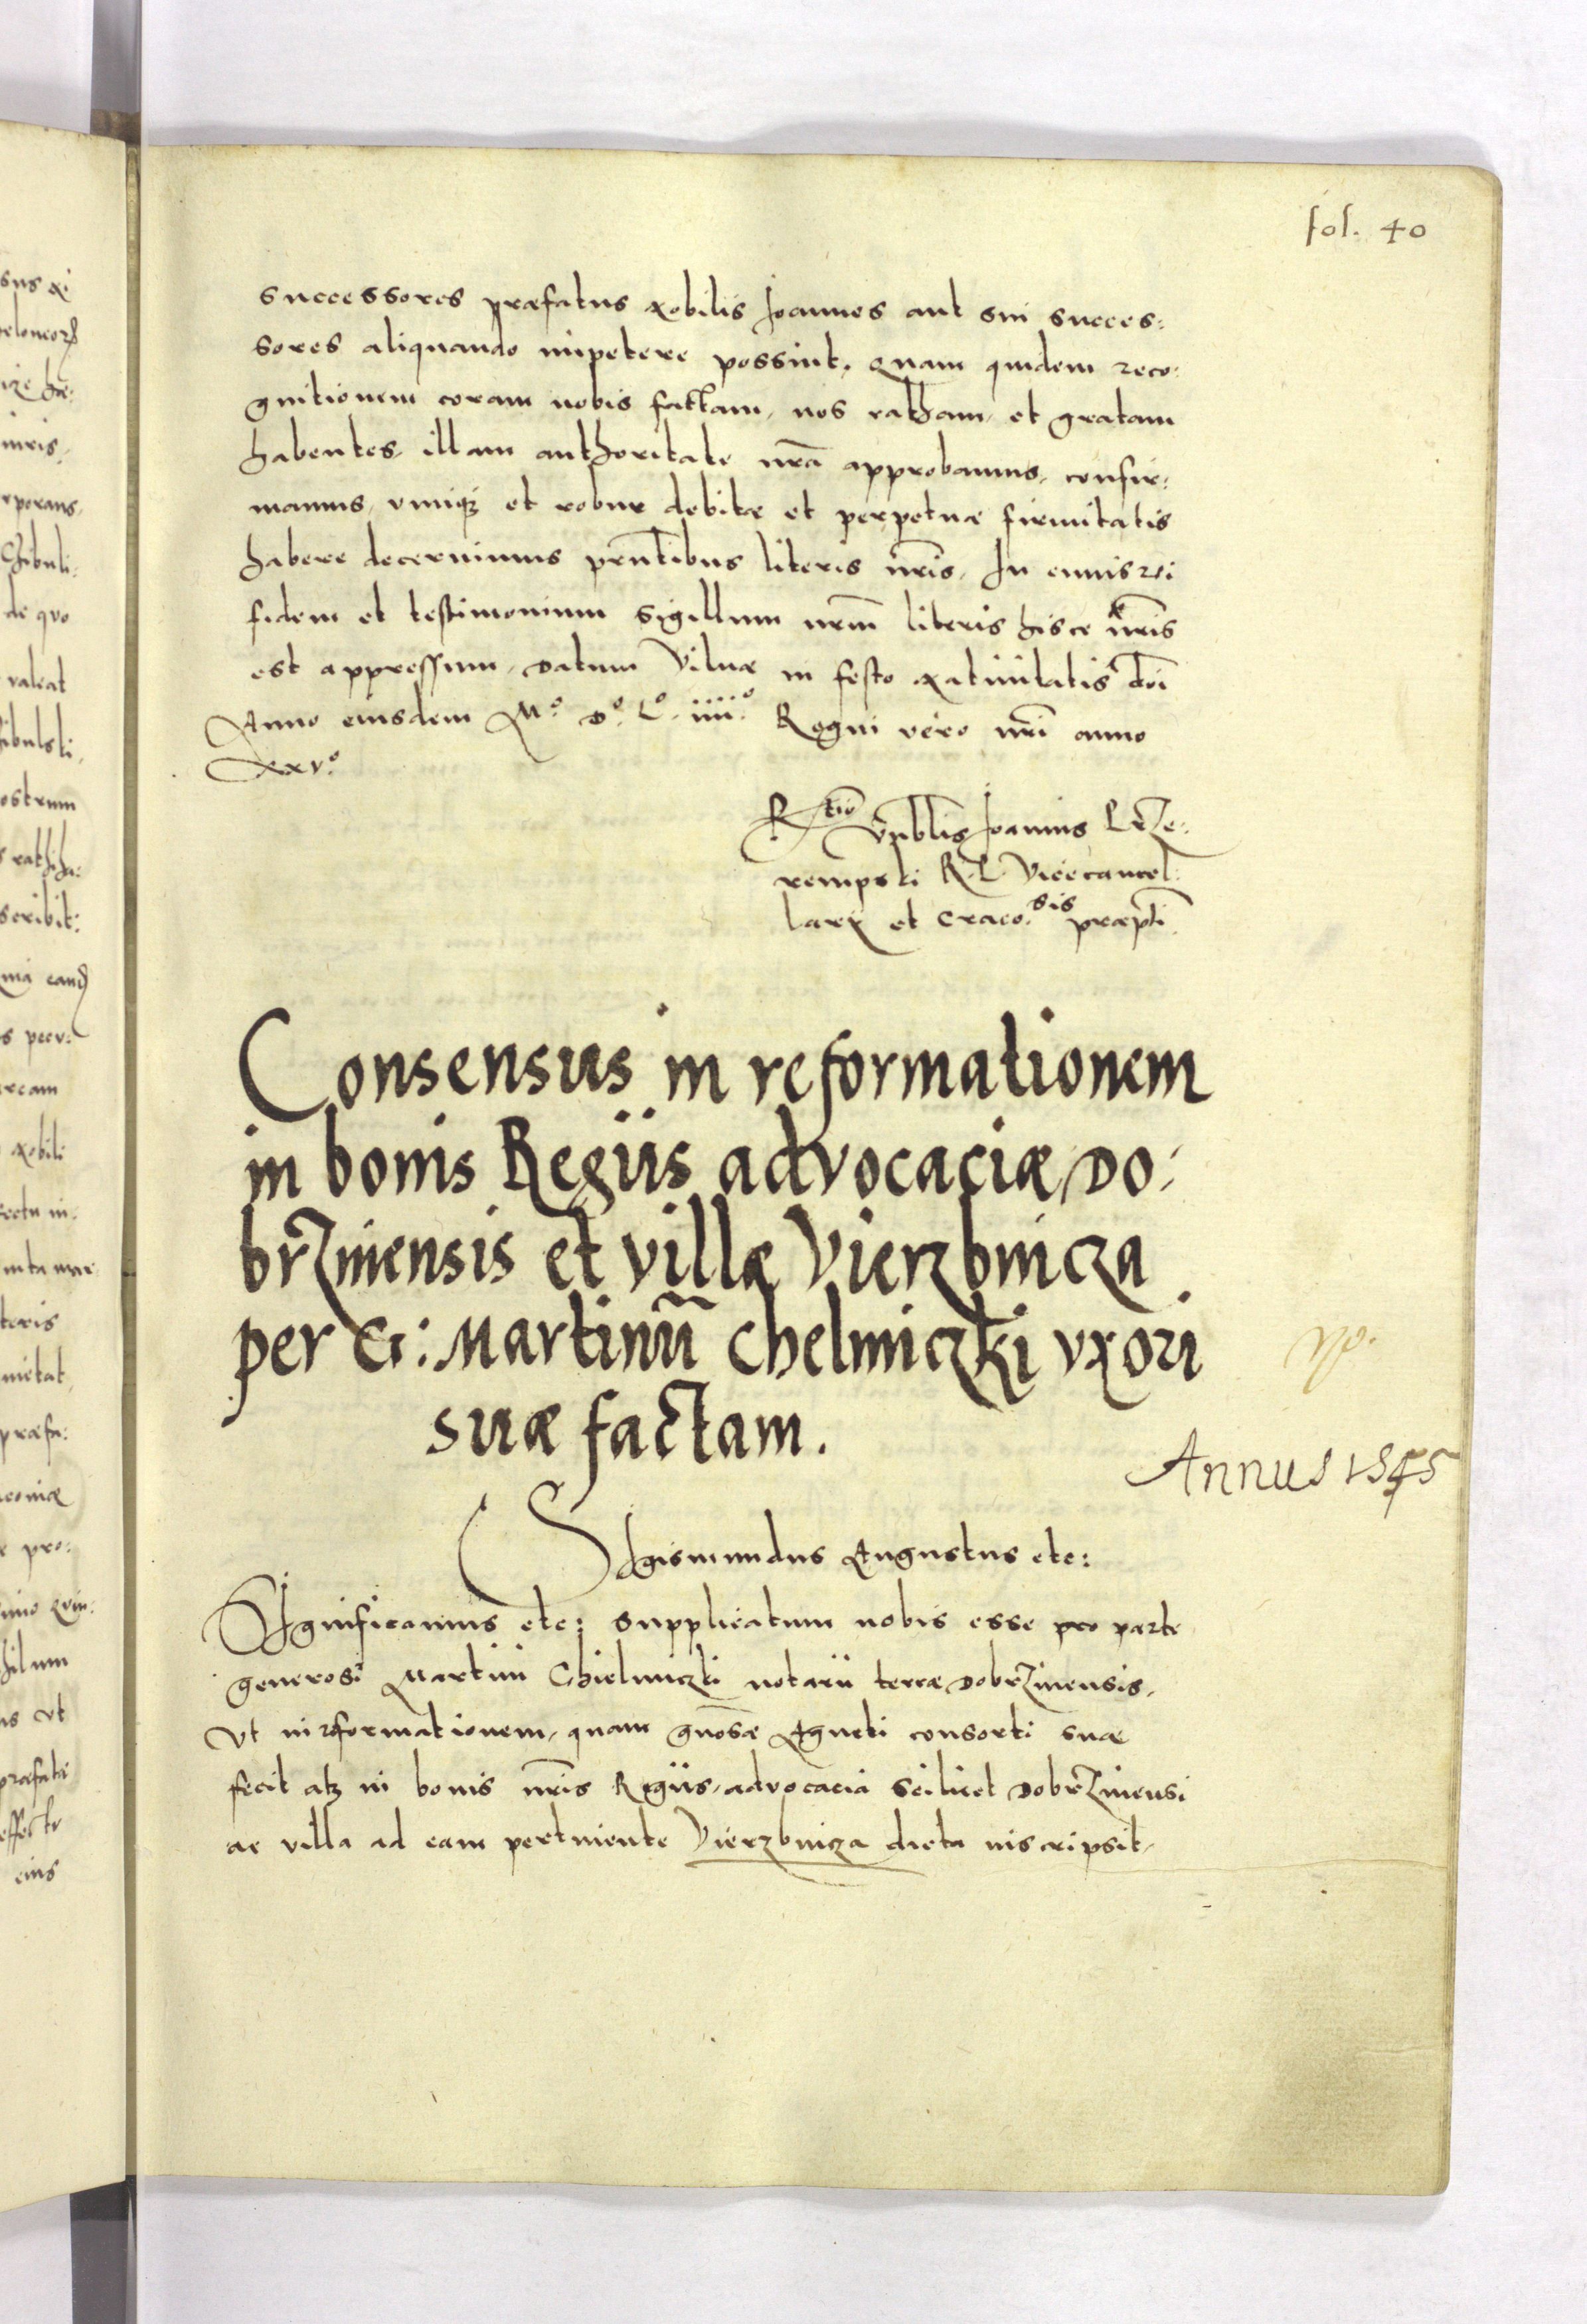 fol. 40
successores præfatus Nobilis Joannes aut sui succes:
sores aliquando impetere possint. Quam quidem reco:
gnitionem coram nobis factam, nos ratham, et gratam
habentes, illam authoritate nr̃a approbamus, confir:
mamus, vimq3 et robur debitæ et perpetuæ firmitatis
habere decernimus prñtibus literis nr̃is. In cuius rei
fidem et testimonium Sigillum nrm̃ literis hisce nr̃is
est appressum. Datum Vilnæ in festo Natiuitatis dñi
Anno eiusdem M.º D.º L.º iiii.º Regni vero nr̃i anno
xxv.º
R̃tio Vñblis Joannis Prze:
rempski R. P. Vicecancel:
larij et Craco.sis præpti
Consensus in reformationem
in bonis Regiis advocaciæ Do:
brzinensis et villæ Vierzbnicza
per G: Martinũ Chelmiczki vxori
suæ factam.
Annus 1545
Sigismundus Augustus etc:
Significamus etc: supplicatum nobis esse pro parte
generosi Martini Chielmiczki notarii terræ Dobrzinensis,
Vt in reformationem, quam gnõsæ Agneti consorti suæ
fecit atq3 in bonis nr̃is Regiis, advocacia scilicet Dobrzinensi
ac villa ad eam pertinente Vierzbnicza dicta inscripsit,